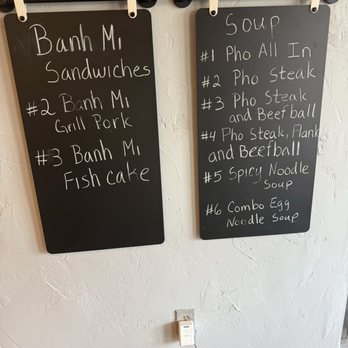 Banh Mi
Sandwiches
#2 Banh Mi
Grill Pork
#3 Banh Mi
Fish cake
Soup
#1 Pho All In
#2 Pho Steak
#3 Pho Steak
and Beefball
#4 Pho Steak, Flank
and Beefball
#5 Spicy Noodle
Soup
#6 Combo Egg
Noodle Soup